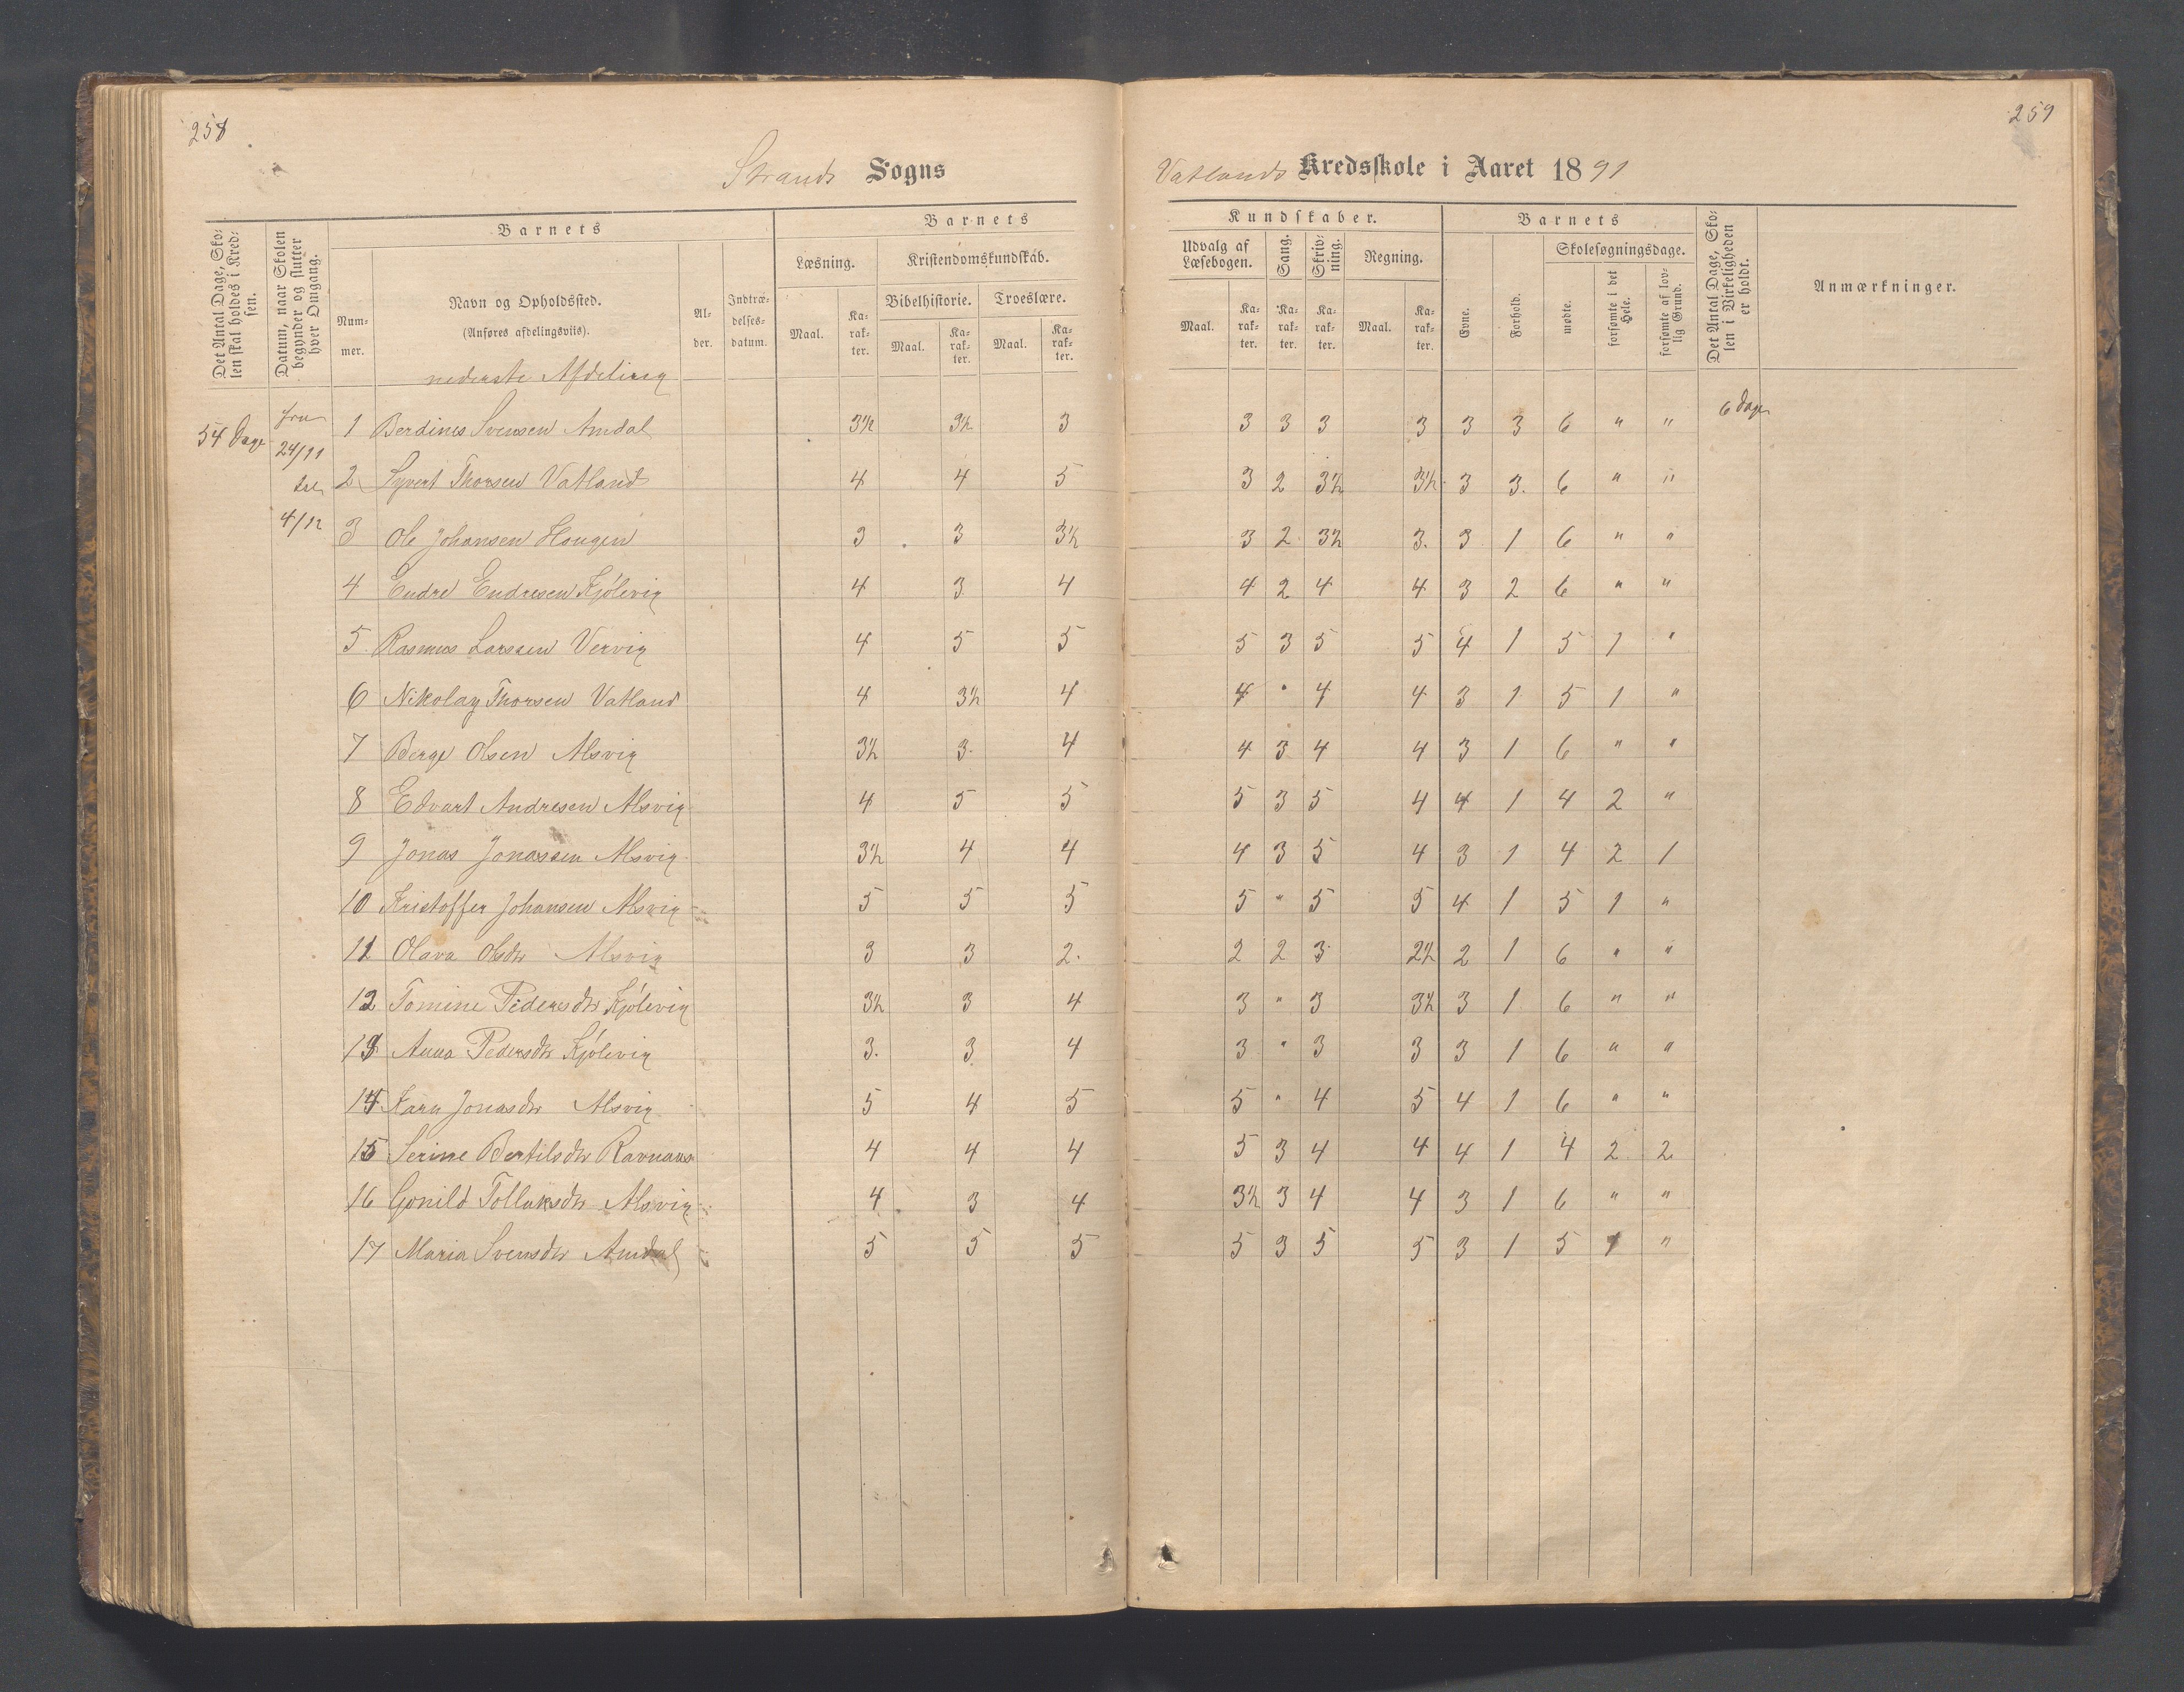 258
259
Strands Sogns
Vatlands Kredsskole i Aaret 1891
Det Antal Dage, Skolen skal holdes i Kredsen.
Datum, naar Skolen begynder og slutter hver Omgang.
Barnets
Nummer.
Navn og Opholdssted.
(Anføres afdelingsviis).
Alder.
Indtrædelsesdatum.
Barnets
Læsning.
Kristendomskundskab.
Bibelhistorie. Troeslære.
Maal. Karakter. Maal. Karakter. Maal. Karakter.
Kundskaber.
Udvalg af Læsebogen. Sang. Skrivning. Regning.
Maal. Karakter. Karakter. Karakter. Maal. Karakter.
Barnets
Evne. Forhold. Skolesøgningsdage.
mødte. forsømte i det Hele. forsømte af lovlig Grund.
Det Antal Dage, Skolen i Virkeligheden er holdt.
Anmærkninger.
nederste Afdeling
54 Dage fra 24/11 til 4/12
1 Berdines Svensen Amdal 3½ 3½ 3 3 3 3 3 3 3 6 " " 6 Dage
2 Syvert Thorsen Vatland 4 4 5 3 2 3½ 3½ 3 3. 6 " "
3 Ole Johansen Haugen 3 3 3½ 3 2 3½ 3. 3 1 6 " "
4 Endre Endresen Kjølevig 4 3 4 4 2 4 4 3 2 6 " "
5 Rasmus Larssen Vervig 4 5 5 5 3 5 5 4 1 5 1 "
6 Nikolay Thorsen Vatland 4 3½ 4 4 " 4 4 3 1 5 1 "
7 Berge Olsen Alsvig 3½ 3 4 4 3 4 4 3 1 6 " "
8 Edvart Andresen Alsvig 4 5 5 5 3 5 4 4 1 4 2 "
9 Jonas Jonassen Alsvig 3½ 4 4 4 3 5 4 3 1 4 2 1
10 Kristoffer Johansen Alsvig 5 5 5 5 " 5 5 4 1 5 1 "
11 Olava Olsdtr Alsvig 3 3 2. 2 2 3 2½ 2 1 6 " "
12 Tomine Pedersdtr Kjølevig 3½ 3 4 3 " 3 3½ 3 1 6 " "
13 Anna Pedersdtr Kjølevig 3. 3 4 3 " 3 3 3 1 6 " "
14 Karn Jonasdtr Alsvig 5 4 5 5 " 4 5 4 1 6 " "
15 Serine Bertilsdtr Ravnaas 4 4 4 5 3 4 4 4 1 4 2 2
16 Gonild Tollaksdtr Alsvig 4 3 4 3½ 3 4 4 3 1 6 " "
17 Maria Svensdtr Amdal 5 5 5 5 3 5 5 3 1 5 1 "